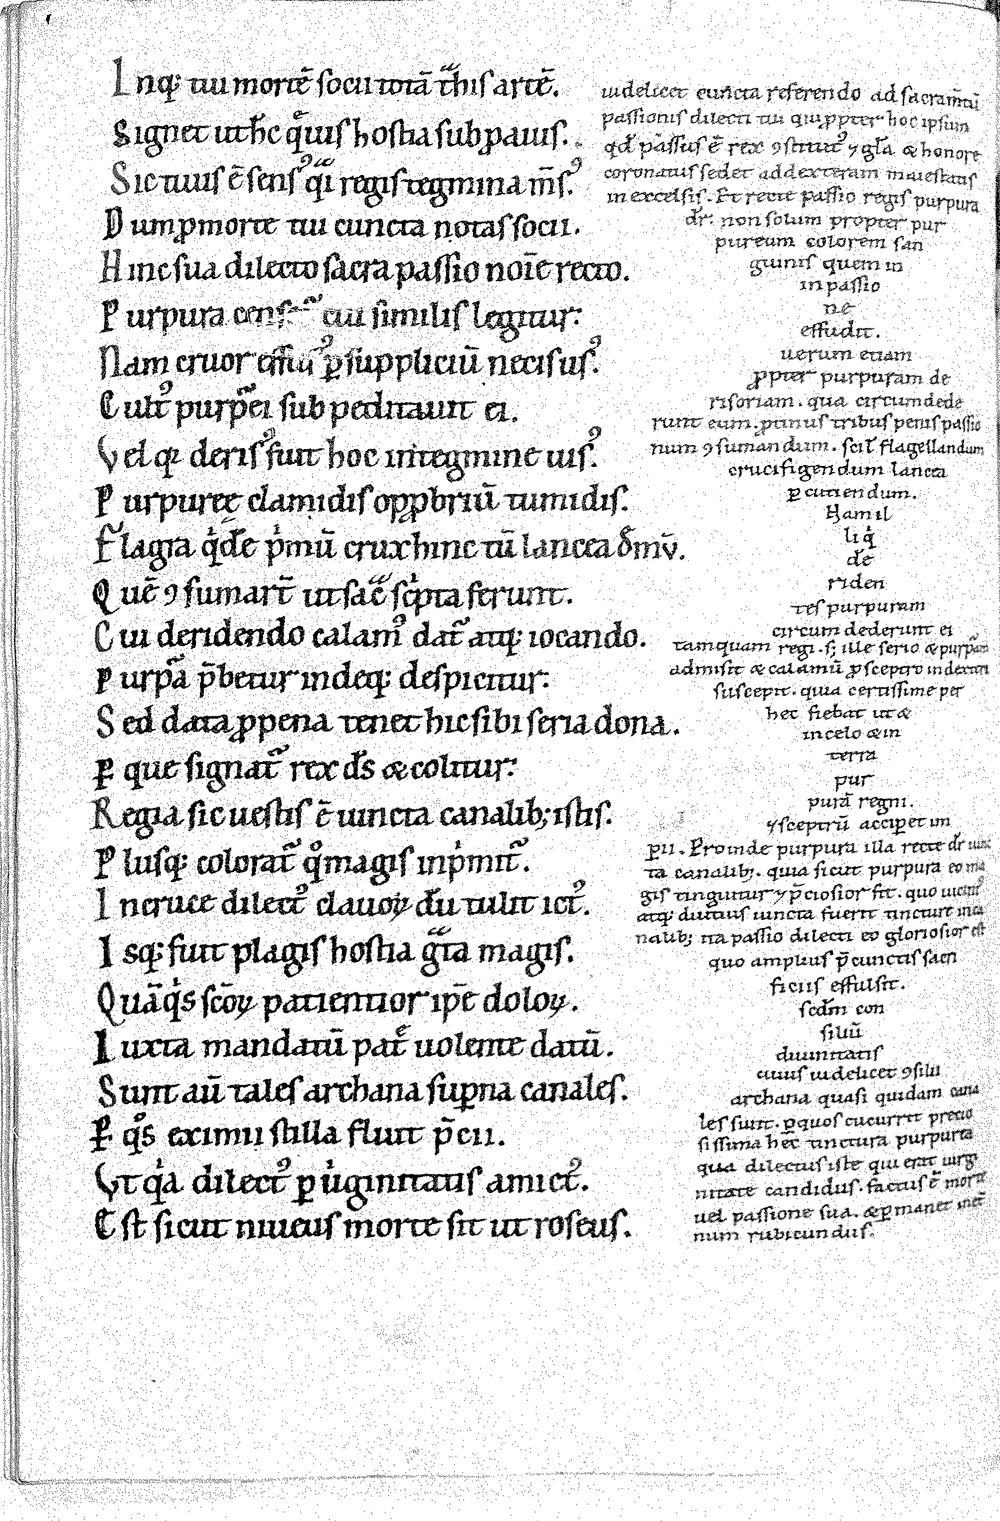 Inq; tui mortē socii totā trahis artē.
Signet ut hec quis hostia sub pauis.
Sic tuus ē sensꝰ qͣi regis tegmina mͣs.
Dum ꝓ morte tui cuncta notas socii.
Hinc sua dilecto sacra passio noīe recto.
Purpura cui similis legitur:
Nam cruor ꝑ suppliciū necis usꝰ.
Cultꝰ purpͣei sub peditauit ei.
Vel qꝫ derisꝰ fuit hoc in tegmine uisꝰ.
Purpureę clamidis opprobriū tumidis.
Flagra
Quē ꝯsumart̄ ut sac̄ sc̓pta ferunt.
Cui deridendo calamꝰ dat̄ atq; iocando.
Purpͣa p̄betur indeq; despicitur:
Sed data ꝓ pena tenet hic sibi seria dona.
Ꝑ que signat̄ rex dr̄s & colitur:
Regia sic uestis ē uincta canalib; istis.
Plusq; colorat̄ qͦ magis inpͥmit̄.
In cruce dilectꝰ clauoꝝ dū tulit ictꝰ.
Isq; fuit plagis hostia grͣta magis.
Quā qͥs sc̄oꝝ patientior ip̄e doloꝝ.
Iuxta mandatū patͤ uolente datū.
Sunt aū tales archana suꝑna canales.
Ꝑ qͦs eximii stilla fluit p̄cii.
Vt qͥa dilectꝰ ꝑ uͥginitatis amictꝰ.
Est sicut niueus morte sit ut roseus.
uidelicet cuncta referendo ad sacram̄tū
passionis dilecti tui qui ꝓpter hoc ipsum
qd̄ passus ē rex ꝯstituit᷒ ⁊ gl̄a & honore
coronatus sedet ad dexteram maiestatis
in excelsis. Et recte passio regis purpura
dr̄. non solum propter pur
pureum colorem san
guinis quem in
in passio
ne
effudit.
uerum etiam
ꝓpter purpuram de
risoriam. qua circumdede
runt eum. ꝓtinus tribus penis passio
num ꝯsumandum. scil̄ flagellandum
crucifigendum lancea
ꝑcutiendum.
Nam il
li qͥ
dē
riden
tes purpuram
circum dederunt ei
tamquam regi. s; ille serio & purpͣam
admisit & calamū ꝓ sceptro in dextera
suscepit. quia certissime per
hec fiebat ut &
in celo & in
terra
pur
purā regni.
⁊ sceptrū acciperet im
ꝑii. Proinde purpura illa recte dr̄
ta canalib;. quia sicut purpura eo ma
gis tinguitur ⁊ p̄ciosior fit. quo
atq; diutius iuncta fuerit tincture in ca
nalib; ita passio dilecti eo gloriosior est
quo amplius p̄ cunctis sacri
ficiis effulsit.
scd̄m con
siliū
diuinitatis
cuius uidelicet ꝯsilii
archana quasi quidam cana
les sunt. ꝑ quos cucurrit precio
sissima hec tinctura purpurea
qua dilectus iste qui erat uirgi
nitate candidus. factus ē morte
uel passione sua. & ꝑmanet inet̄
num rubicundus.